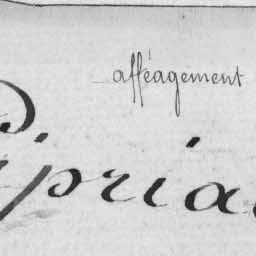 afféagement
Pipria